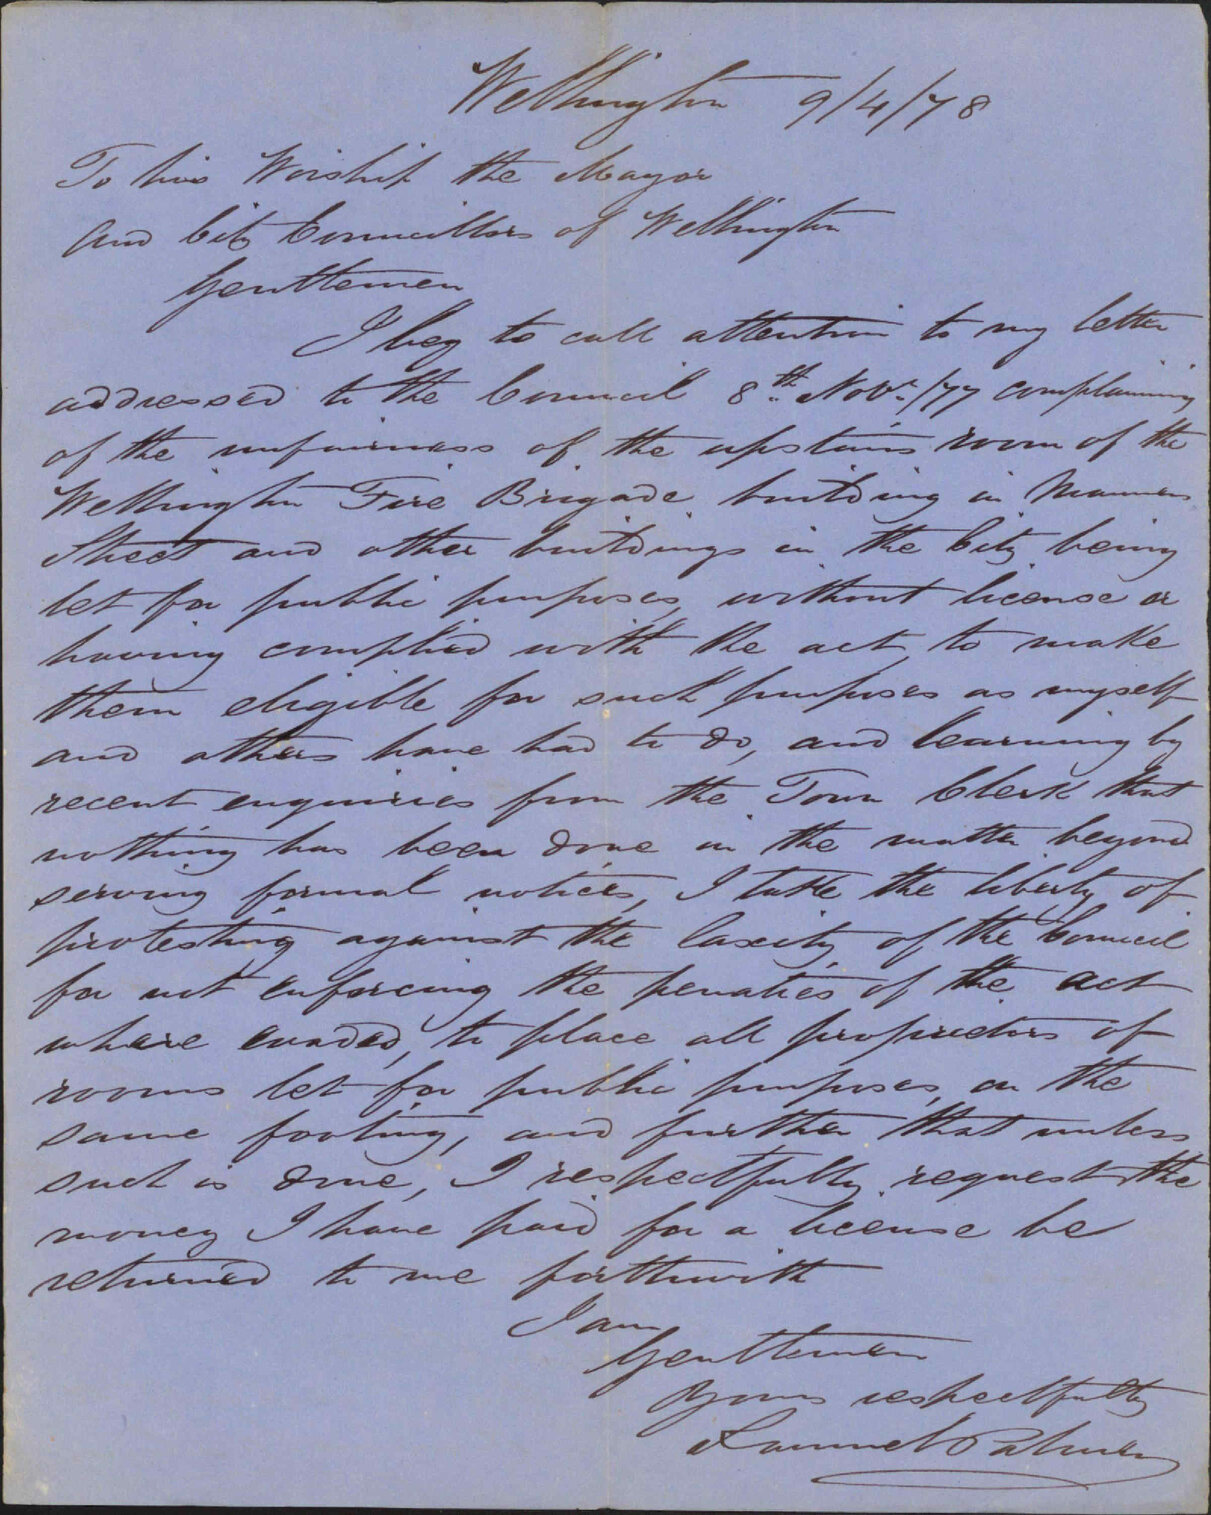 Wellington 9/4/78
To his Worship the Mayor
And City Councillors of Wellington
Gentlemen
I beg to call attention to my letter
addressed to the Council 8th Novr/77 complaining
of the unfairness of the upstairs room of the
Wellington Fire Brigade building in Manners
Street and other buildings in the City being
let for public purposes, without license or
having complied with the act, to make
them eligible for such purposes as myself
and others have had to do, and learning by
recent enquiries from the Town Clerk that
nothing has been done in the matter beyond
serving formal notices, I take the liberty of
protesting against the laxity of the Council
for not enforcing the penalties of the act
where evaded, to place all proprietors of
rooms let for public purposes, on the
same footing, and further that unless
such is done, I respectfully request the
money I have paid for a license be
returned to me forthwith
I am
Gentlemen
Yours respectfully
Samuel Palmer